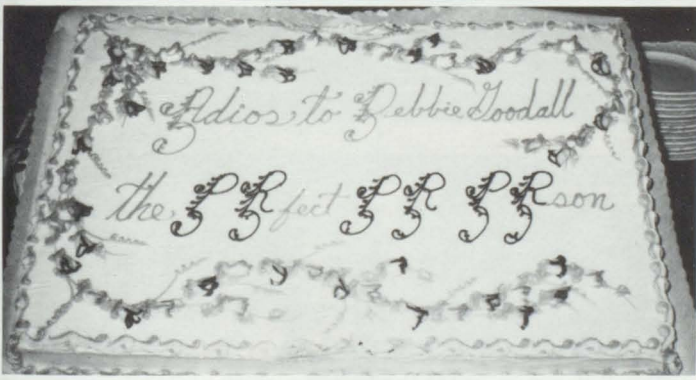 Adios to Debbie Goodall
the PRfect PR PRson